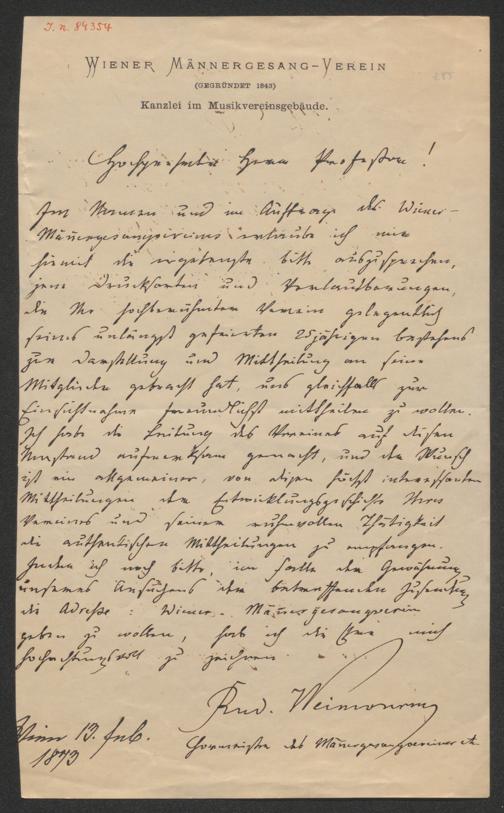 I. N. 84354
WIENER MÄNNERGESANG-VEREIN
(GEGRÜNDET 1843)
Kanzlei im Musikvereinsgebäude.
Hochgeehrter Herr Professor!
Im Namen und im Auftrage des Wiener-
Männergesangvereins erlaube ich mir
hiemit die ergebenste Bitte auszusprechen,
jene Drucksorten und Verlautbarungen,
die Ihr hochberühmter Verein gelegentlich
seines unlängst gefeierten 25jährigen Bestehens
zur Darstellung und Mittheilung an seine
Mitglieder gebracht hat, uns gleichfalls zur
Einsichtnahme freundlichst mittheilen zu wollen.
Ich habe die Leitung des Vereines auf diesen
Umstand aufmerksam gemacht, und der Wunsch
ist ein allgemeiner, von diesen höchst interessanten
Mittheilungen der Entwicklungsgeschichte Ihres
Vereines und seiner ruhmvollen Thätigkeit
die authentischen Mittheilungen zu empfangen.
Indem ich noch bitte, im Falle der Gewährung
unseres Ansuchens der betreffenden Zusendung
die Adresse: Wiener-Männergesangverein
geben zu wollen, hab ich die Ehre mich
hochachtungsvoll zu zeichnen
Rud. Weinwurm
Chormeister des Männergesangvereines etc
Wien 13. Feb.
1873